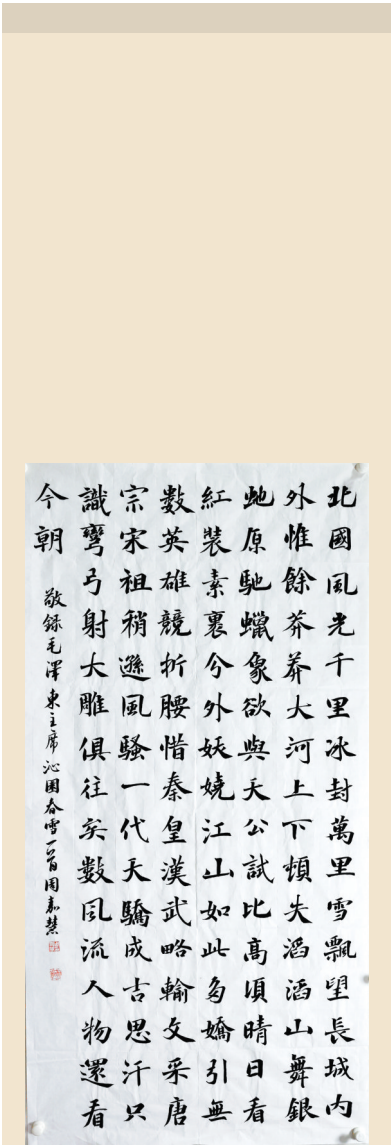 北國風光千里冰封萬里雪飄望長城内
外惟餘莽莽大河上下頓失滔滔山舞銀
虵原馳蠟象欲與天公試比高須晴日看
紅裝素裹分外妖嬈江山如此多嬌引無
數英雄競折腰惜秦皇漢武略輸文采唐
宗宋祖稍遜風騷一代天驕成吉思汗只
識彎弓射大雕俱往矣數風流人物還看
今朝
敬錄毛澤東主席沁園春雪一首周嘉慧